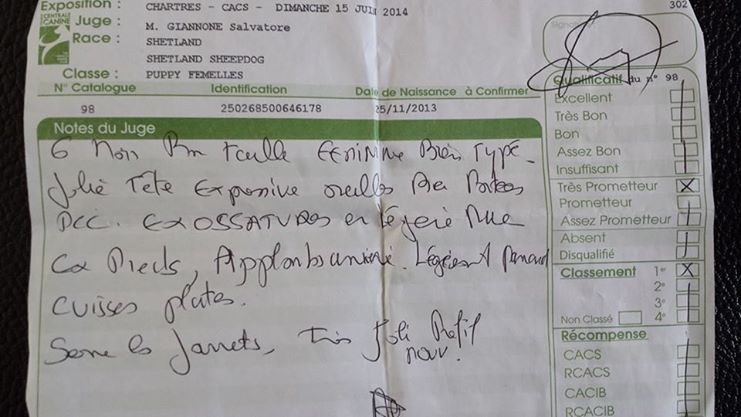 Exposition : CHARTRES - CACS - DIMANCHE 15 JUIN 2014
302
CENTRALE CANINE
Juge : M. GIANNONE Salvatore
Race : SHETLAND
SHETLAND SHEEPDOG
Classe : PUPPY FEMELLES
N° Catalogue Identification Date de Naissance à Confirmer
98 250268500646178 25/11/2013
Notes du Juge
6 Mois Bne taille féminine Bien Type
Jolie Tête Expressive oreilles Bien Portées
DCC. EX OSSATURES en légère
Ex Pieds, Applombs Légèrement Panard
cuisses plates.
Serre les Jarrets, Très Joli Profil
mouv.
Qualificatif du n° 98
Excellent
Très Bon
Bon
Assez Bon
Insuffisant
Très Prometteur X
Prometteur
Assez Prometteur
Absent
Disqualifié
Classement 1er X
2e
3e
Non Classé 4e
Récompense
CACS
RCACS
CACIB
RCACIB